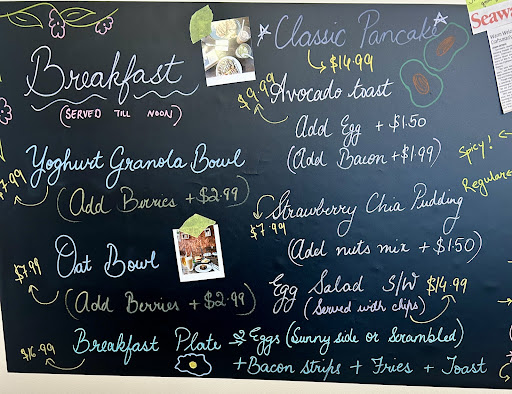 Breakfast
(SERVED TILL NOON)
Yoghurt Granola Bowl
$7.99
(Add Berries +$2.99)
Oat Bowl
$7.99
(Add Berries +$2.99)
Classic Pancake
$14.99
$9.99
Avocado toast
Add Egg +$1.50
(Add Bacon +$1.99)
Strawberry Chia Pudding
$7.99
(Add nuts mix +$1.50)
Egg Salad S/W $14.99
(Served with chips)
$16.99
Breakfast Plate Eggs (Sunny side or Scrambled)
+Bacon strips + Fries + Toast
Spicy!
Regular
Seawa